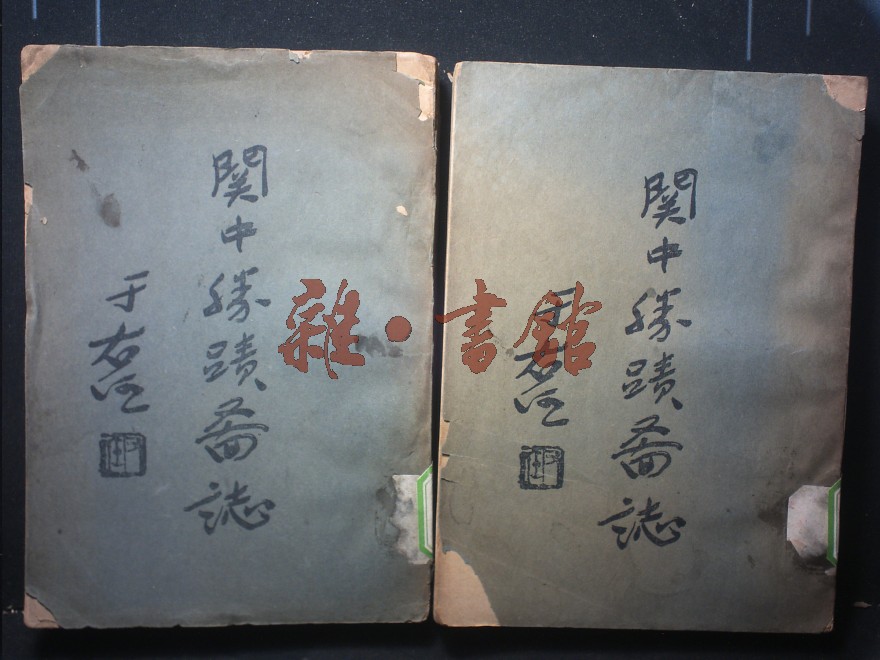 關中勝蹟圖誌
于右任
關中勝蹟圖誌
于右任
雜·書館